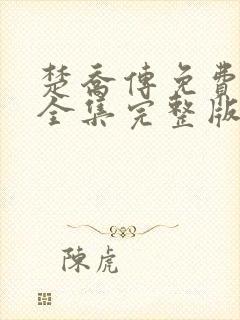 楚喬傳免費
全集完整版
陳虎